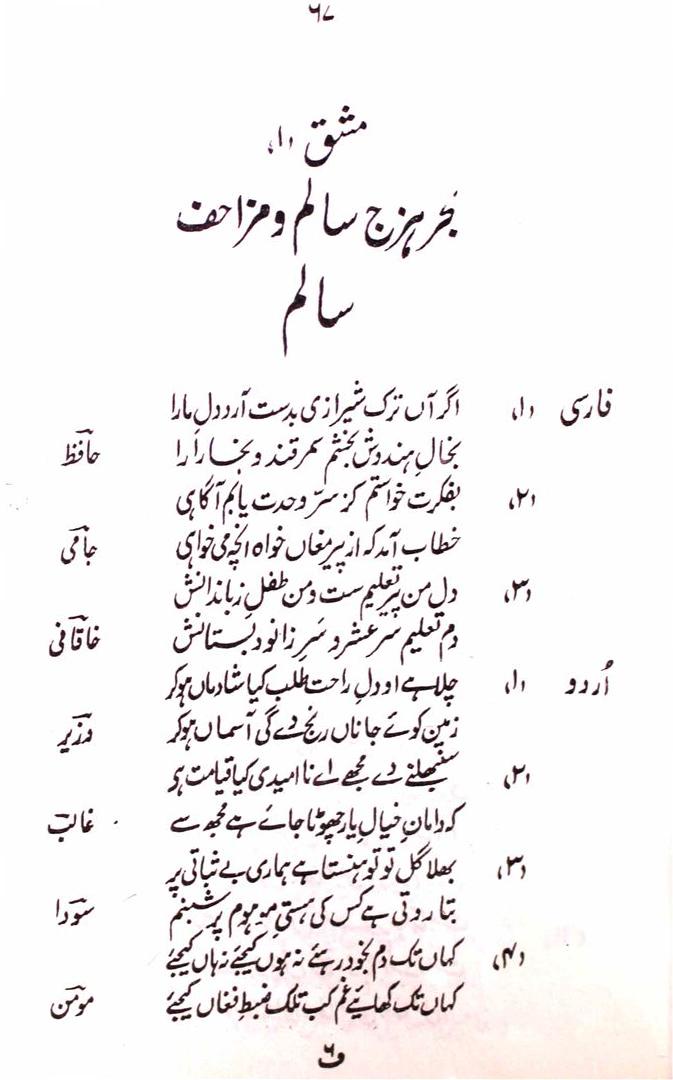 ۶۷
مشق (۱)
بحر ہزج سالم و مزاحف
سالم
فارسی (۱) اگر آں ترک شیرازی بدست آرد دلِ مارا
بخالِ ہندوش بخشم سمرقند و بخارا را حافظؔ
(۲) بفکرت خواستم کز سرِّ وحدت یابم آگاہی
خطاب آمد کہ از پیرِ مغاں خواہ انچہ می خواہی جامیؔ
(۳) دلِ من پیرِ تعلیم ست و من طفلِ زباندانش
دمِ تعلیم سرعشر و سرِ زانو دبستانش خاقانیؔ
اُردو (۱) چلا ہے او دلِ راحت طلب کیا شادماں ہوکر
زمین کوئے جاناں رنج دے گی آسماں ہوکر وزیرؔ
(۲) سنبھلنے دے مجھے اے ناامیدی کیا قیامت ہی
کہ دامانِ خیالِ یار چھوٹا جائے ہے مجھ سے غالبؔ
(۳) بھلا گل تو تو ہنستا ہے ہماری بے ثباتی پر
بتا روتی ہے کس کی ہستیِ موہوم پر شبنم سوداؔ
(۴) کہاں تک دم بخود رہئے نہ ہوں کیجئے نہ ہاں کیجئے
کہاں تک کھائیے غم کب تلک ضبطِ فغاں کیجئے مومنؔ